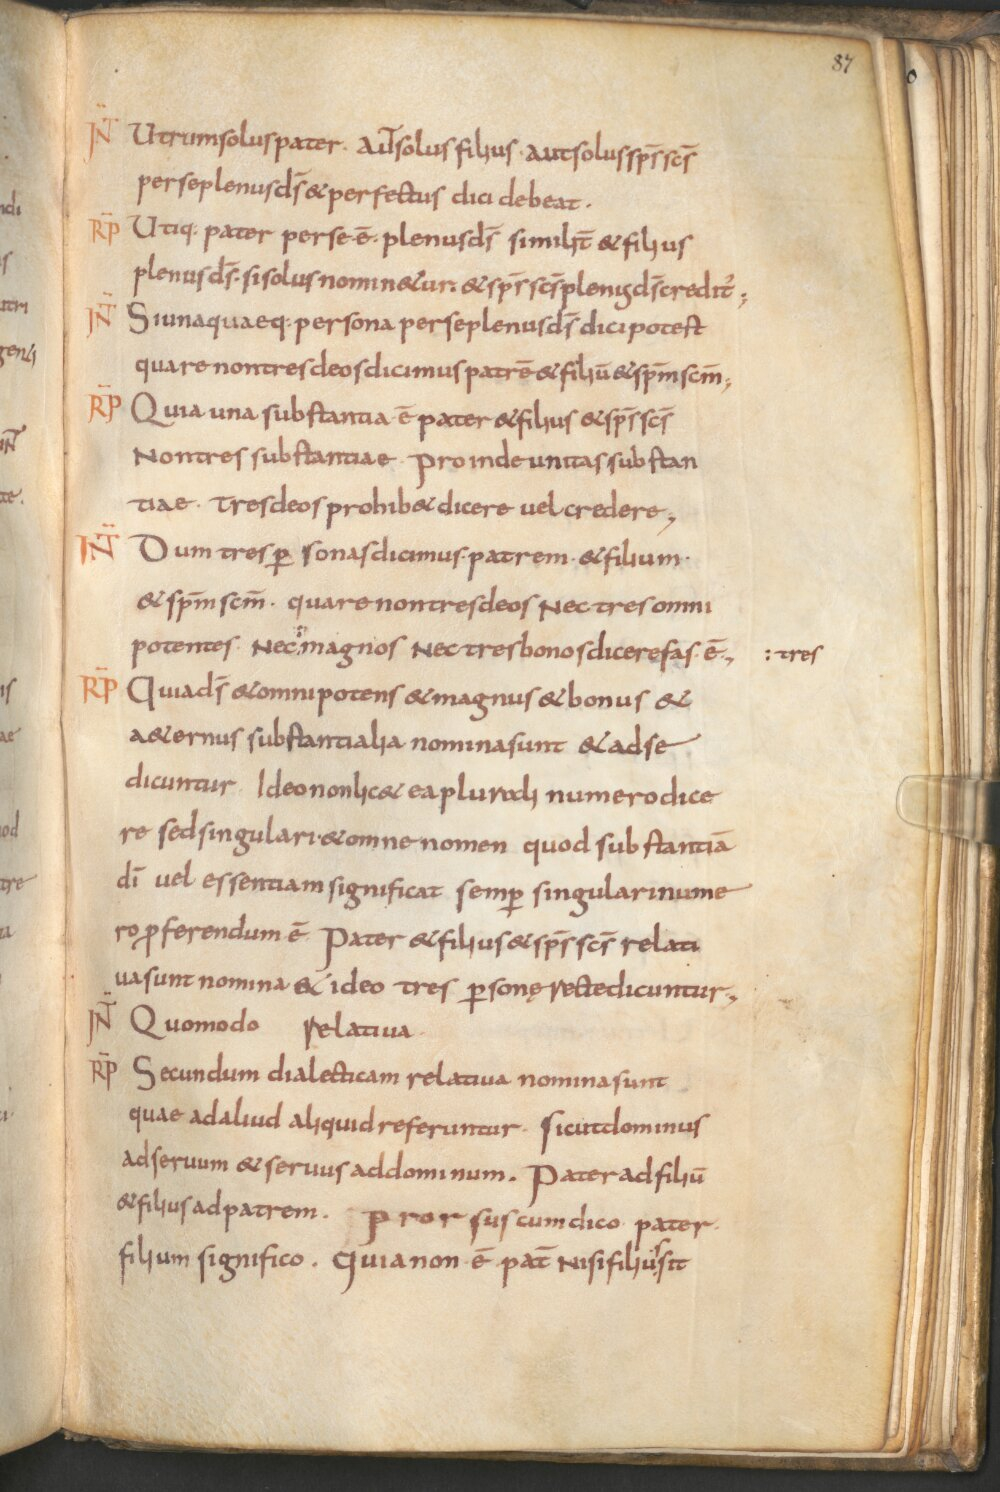 87
INT Utrum solus pater. Aut solus filius. aut solus sp̄s sc̄s
per se plenus ds̄ & perfectus dici debeat.
RP Utiq; pater per se ē. plenus ds̄ similit̄ & filius
plenus ds̄. si solus nomin&ur. & sp̄s sc̄s plenus ds̄ credit͛;
INT Si unaquaeq; persona per se plenus ds̄ dici potest
quare non tres deos dicimus patrē & filiū & sp̄m sc̄m;
RP Quia una substantia ē pater & filius & sp̄s sc̄s
Non tres substantiae. Proinde unitas substan
tiae. Tres deos prohib& dicere vel credere;
INT Dum tres ꝑsonas dicimus. patrem. & filium.
& sp̄m sc̄m. quare non tres deos Nec tres omni
potentes. Nec magnos Nec tres bonos dicere fas ē; : tres
RP Quia ds̄ & omnipotens & magnus & bonus &
a&ernus substantialia nomina sunt & ad se
dicuntur. Ideo non lic& ea plurali numero dice
re sed singulari. & omne nomen quod substantiā
dī vel essentiam significat semꝑ singulari nume
ro ꝓferendum ē. Pater & filius & sp̄s sc̄s relati
va sunt nomina & ideo tres ꝑsonę recte dicuntur;
INT Quomodo relativa.
RP Secundum dialecticam relativa nomina sunt
quae ad aliud aliquid referuntur. Sicut dominus
ad servum & servus ad dominum. Pater ad filiū
& filius ad patrem. Prorsus cum dico pater.
filium significo. Quia non ē pat̄ Nisi filius sit